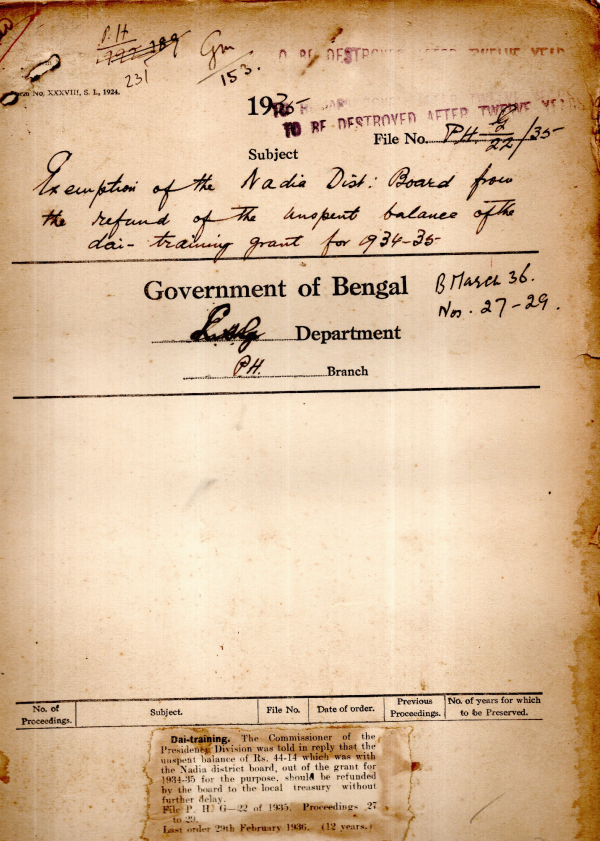 P.H
231
Gm
153.
O BE DESTROYED AFTER TWELVE YEAR
No. XXXVIII, S. I., 1924.
1935
TO BE DESTROYED AFTER TWELVE YEARS
File No. P.H. G/22/35
Subject
Exemption of the Nadia Dist: Board from
the refund of the unspent balance of the
dai-training grant for 1934-35
Government of Bengal
B March 36.
Nos. 27-29.
Department
P.H. Branch
No. of Proceedings.
Subject.
File No.
Date of order.
Previous Proceedings.
No. of years for which to be Preserved.
Dai-training. The Commissioner of the
Presidency Division was told in reply that the
unspent balance of Rs. 44-14 which was with
the Nadia district board, out of the grant for
1934-35 for the purpose, should be refunded
by the board to the local treasury without
further delay.
File P. H. G—22 of 1935. Proceedings 27
to 29.
Last order 29th February 1936. (12 years.)